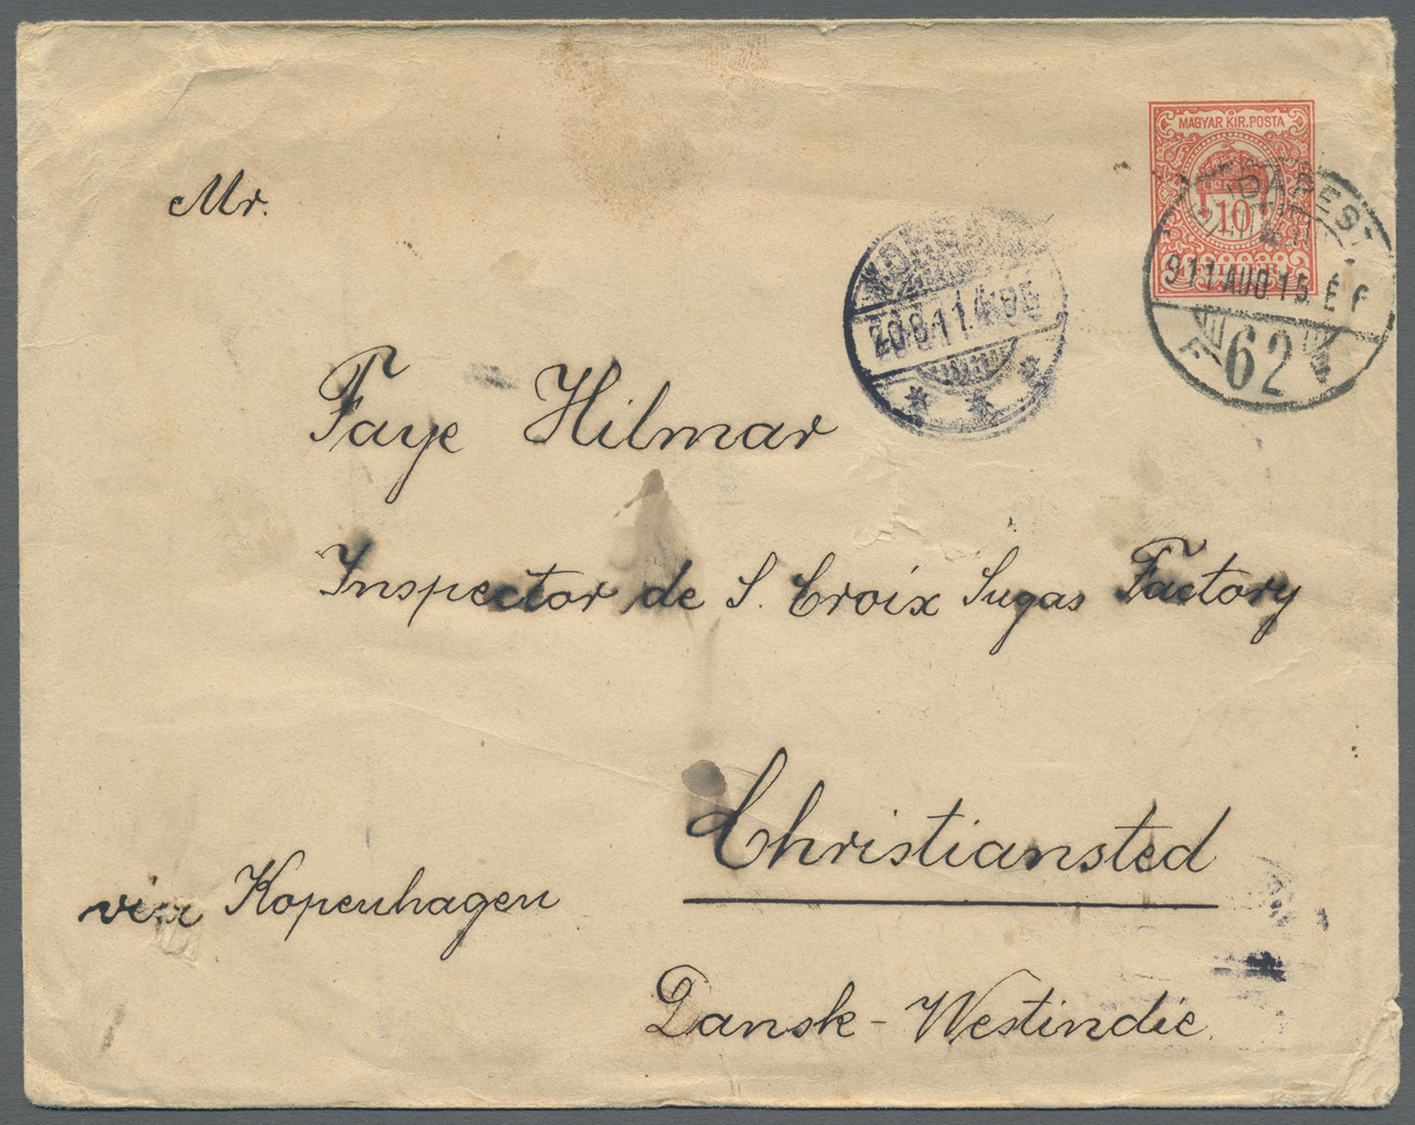 MAGYAR KIR. POSTA
10
911 AUG 15
62
20.8.11.4
Mr.
Faye Hilmar
Inspector de S. Croix Sugas Factory
Christiansted
via Kopenhagen
Dansk-Westindie